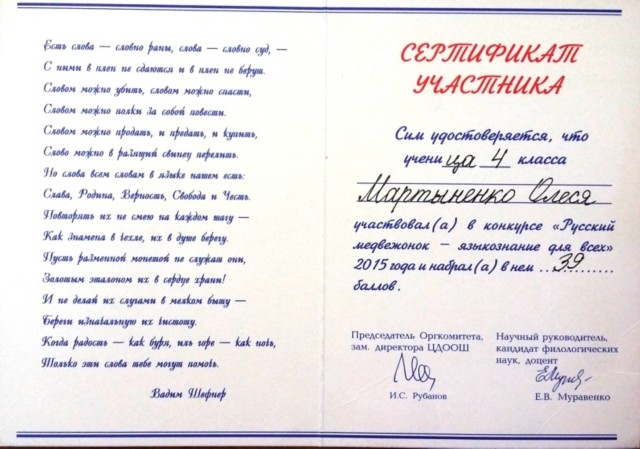 Есть слова — словно раны, слова — словно суд, —
С ними в плен не сдаются и в плен не берут.
Словом можно убить, словом можно спасти,
Словом можно полки за собой повести.
Словом можно продать, и предать, и купить,
Слово можно в разящий свинец перелить.
Но слова всем словам в языке нашем есть:
Слава, Родина, Верность, Свобода и Честь.
Повторять их не смею на каждом шагу —
Как знамена в чехле, их в душе берегу.
Пусть разменной монетой не служат они,
Золотым эталоном их в сердце храни!
И не делай их слугами в мелком быту —
Береги изначальную их чистоту.
Когда радость — как буря, иль горе — как ночь,
Только эти слова тебе могут помочь.
Вадим Шефнер
СЕРТИФИКАТ
УЧАСТНИКА
Сим удостоверяется, что
учени ца 4 класса
Мартыненко Олеся
участвовал(а) в конкурсе «Русский
медвежонок – языкознание для всех»
2015 года и набрал(а) в нем ...39........
баллов.
Председатель Оргкомитета,
зам. директора ЦДООШ
И.С. Рубанов
Научный руководитель,
кандидат филологических
наук, доцент
Е.В. Муравенко